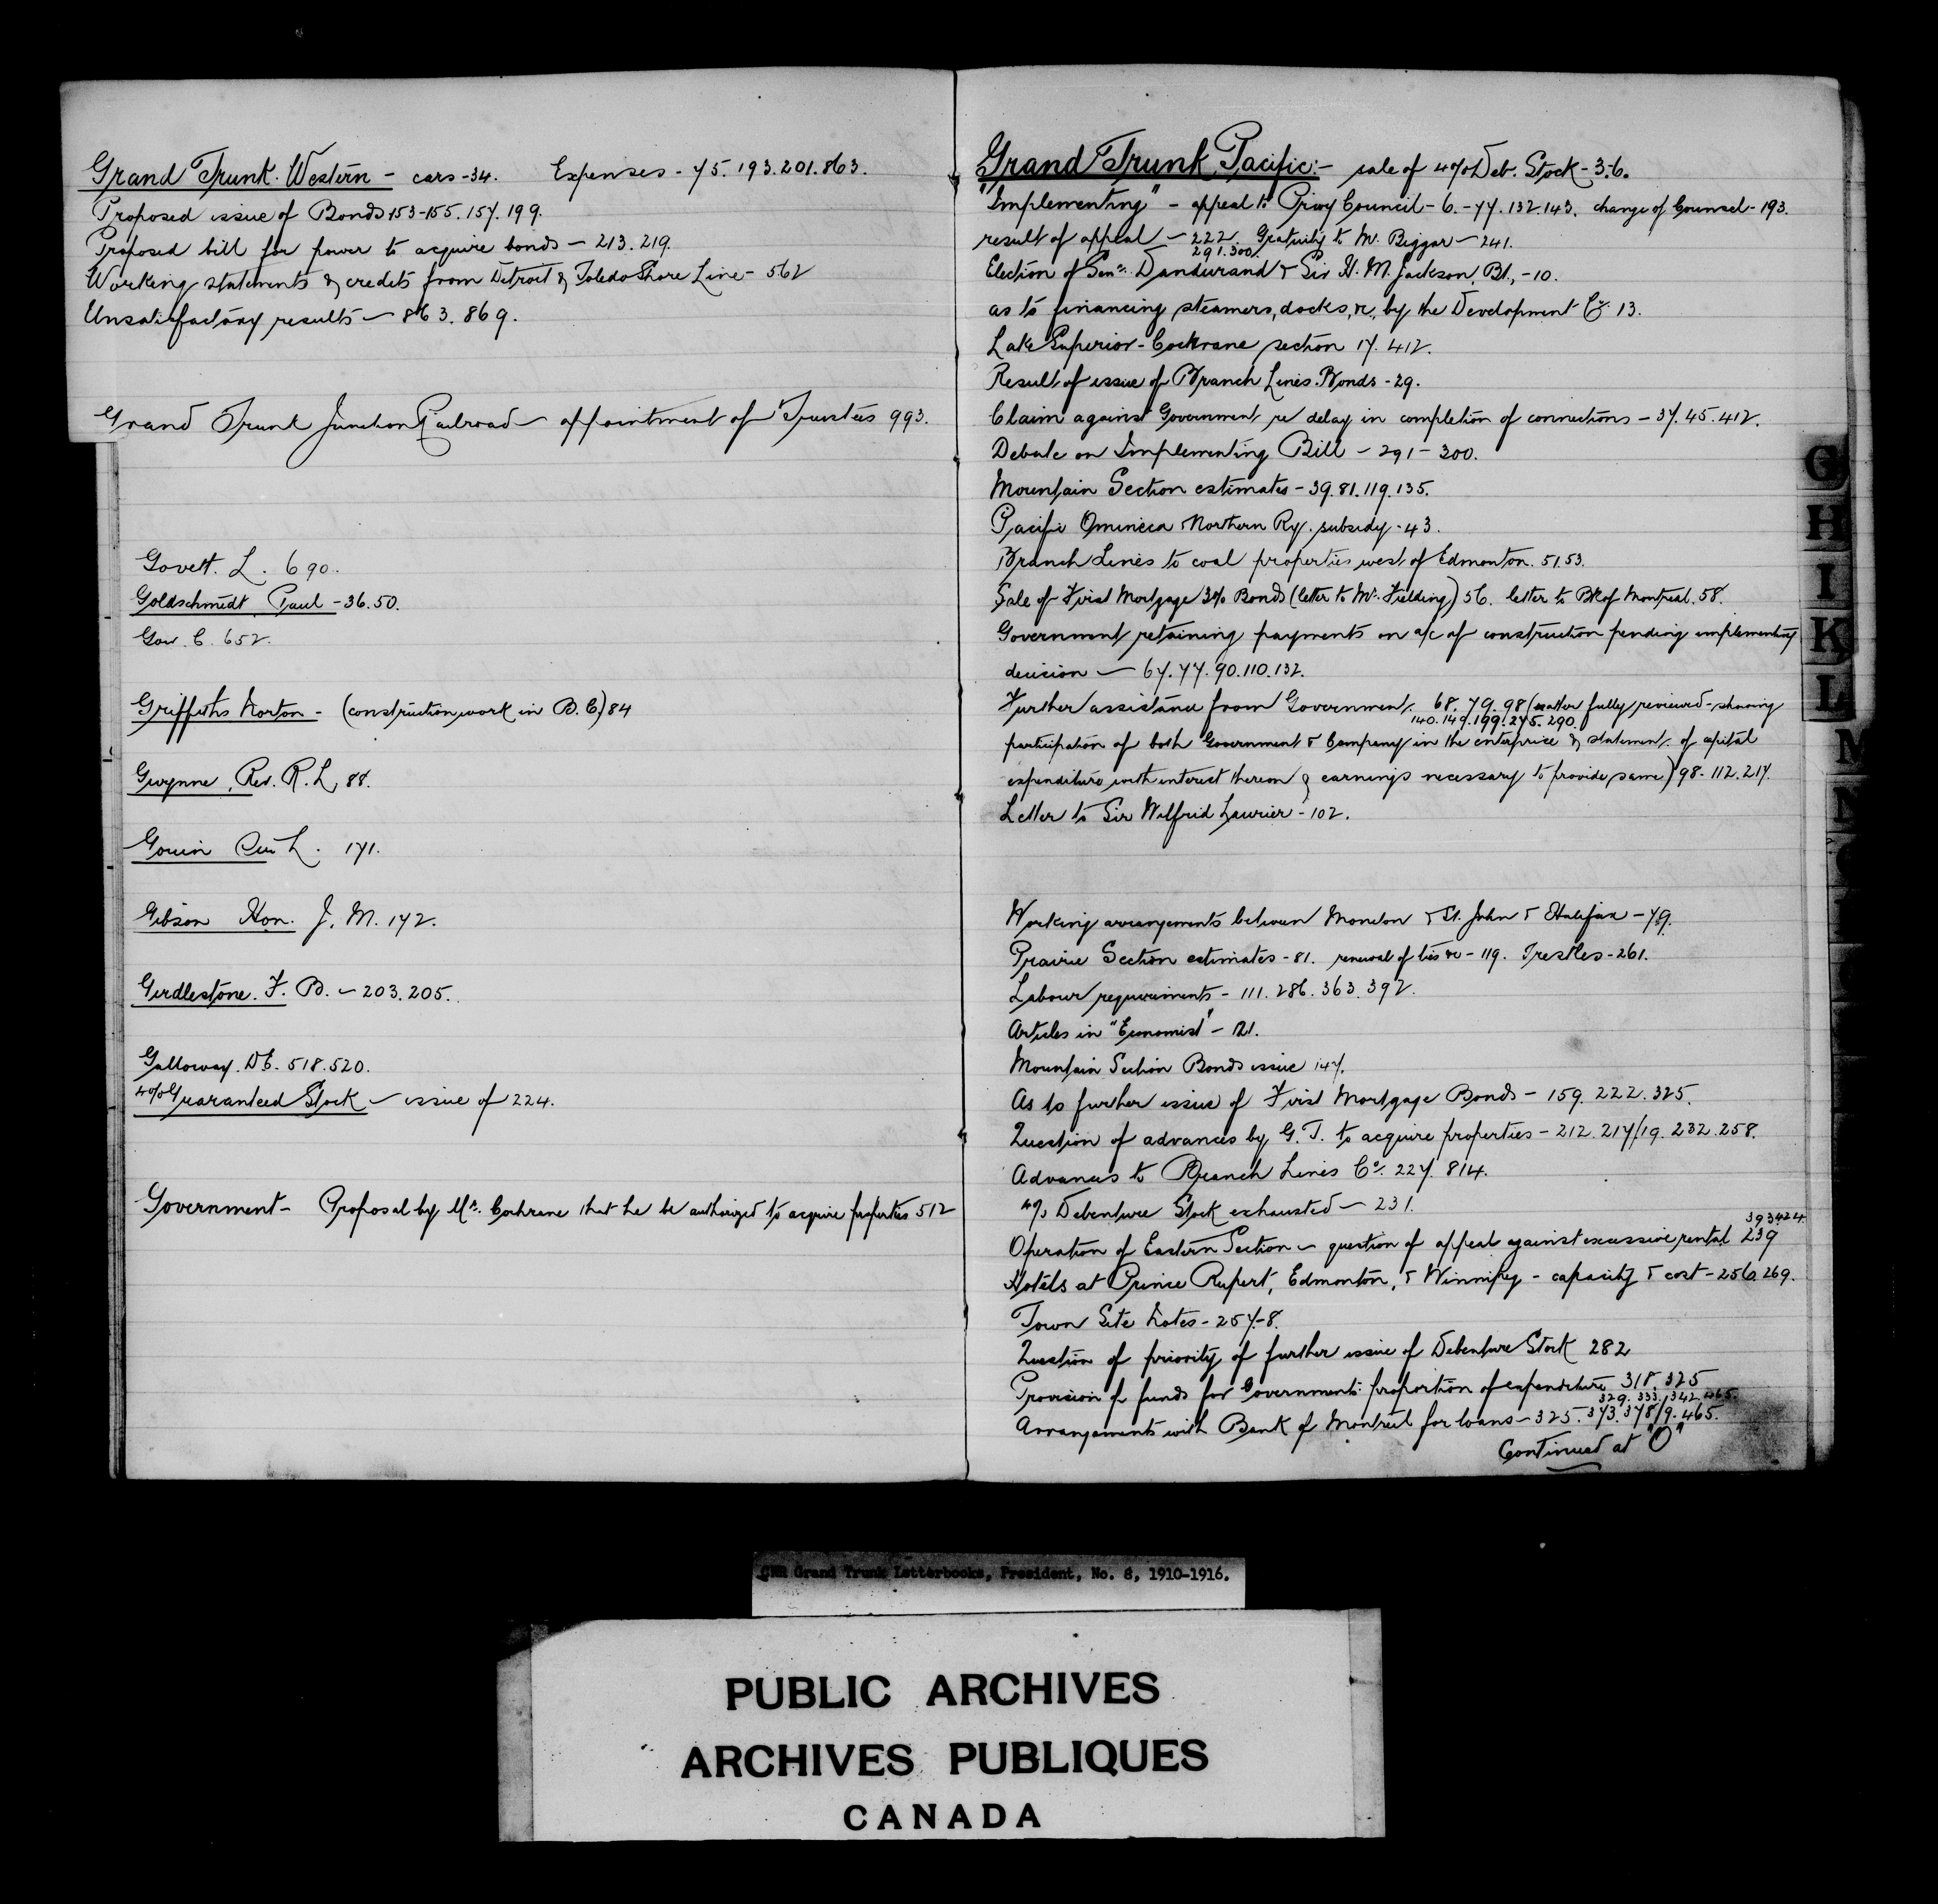 Grand Trunk Western - cars - 34. Expenses - 75. 193. 201. 863.
Proposed issue of Bonds 153-155. 157. 199.
Proposed bill for power to acquire bonds - 213. 219.
Working statements & credits from Detroit & Toledo Shore Line - 562
Unsatisfactory results - 863. 869.
Grand Trunk Junction Railroad - appointment of Trustees 993.
Govett. L. 690.
Goldschmidt Paul - 36. 50.
Gow. C. 652.
Griffiths Norton - (construction work in B.C) 84
Gwynne, Rev. R. L, 88.
Gouin Sir L. 171.
Gibson Hon. J. M. 172.
Girdlestone. F. B. - 203. 205.
Galloway. D.E. 518. 520.
4% Guaranteed Stock - issue of 224.
Government - Proposal by Mr. Cochrane that he be authorized to acquire properties 512
Grand Trunk Pacific:- sale of 4% Deb. Stock - 3. 6.
"Implementing" - appeal to Privy Council - 6. - 77. 132. 143. change of Counsel - 193.
result of appeal - 222. Gratuity to Mr. Biggar - 241.
291. 300.
Election of Senr. Dandurand & Sir H. M. Jackson, Bt, - 10.
as to financing steamers, docks, &c, by the Development Co. 13.
Lake Superior - Cochrane section 17. 412.
Result of issue of Branch Lines Bonds - 29.
Claim against Government re delay in completion of connections - 37. 45. 412.
Debate on Implementing Bill - 291 - 300.
Mountain Section estimates - 39. 81. 119. 135.
Pacific Omineca Northern Ry. subsidy - 43.
Branch Lines to coal properties west of Edmonton. 51. 53.
Sale of First Mortgage 3% Bonds (letter to Mr. Fielding) 56. letter to Bk of Montreal. 58.
Government retaining payments on a/c of construction pending implementing
decision - 67. 77. 90. 110. 132.
Further assistance from Government. 68. 79. 98 (matter fully reviewed - showing
140. 149. 199. 275. 290.
participation of both Government & Company in the enterprise & statement of capital
expenditure with interest thereon & earnings necessary to provide same) 98. 112. 217.
Letter to Sir Wilfrid Laurier - 102.
Working arrangements between Moncton & St. John & Halifax - 79.
Prairie Section estimates - 81. renewal of ties &c - 119. Trestles - 261.
Labour requirements - 111. 286. 363. 392.
Articles in "Economist" - 121.
Mountain Section Bonds issue 147.
As to further issue of First Mortgage Bonds - 159. 222. 325.
Question of advances by G.T. to acquire properties - 212. 217/19. 232. 258.
Advances to Branch Lines Co. 227. 814.
4% Debenture Stock exhausted - 231.
393 424
Operation of Eastern Section - question of appeal against excessive rental 239
Hotels at Prince Rupert, Edmonton, & Winnipeg - capacity & cost - 256. 269.
Town Site Notes - 257-8.
Question of priority of further issue of Debenture Stock 282
Provision of funds for Governments proportion of expenditure 318. 325
329. 333. 342. 465.
Arrangements with Bank of Montreal for loans - 325. 373. 378/9. 465.
Continued at "O"
G
H
I
K
L
M
N
CNR Grand Trunk Letterbooks, President, No. 8, 1910-1916.
PUBLIC ARCHIVES
ARCHIVES PUBLIQUES
CANADA